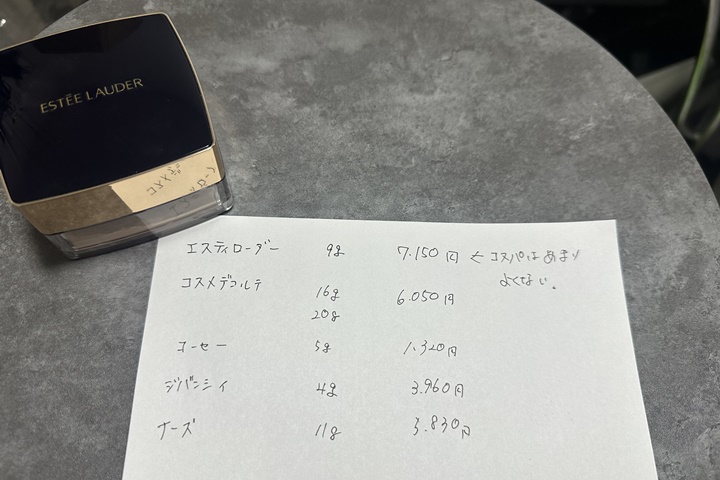 ESTĒE LAUDER
エスティローダー 9g 7.150円 ← コスパはあまり
よくない。
コスメデコルテ 16g 6.050円
20g
コーセー 5g 1.320円
ジバンシィ 4g 3.960円
ナーズ 11g 5.830円